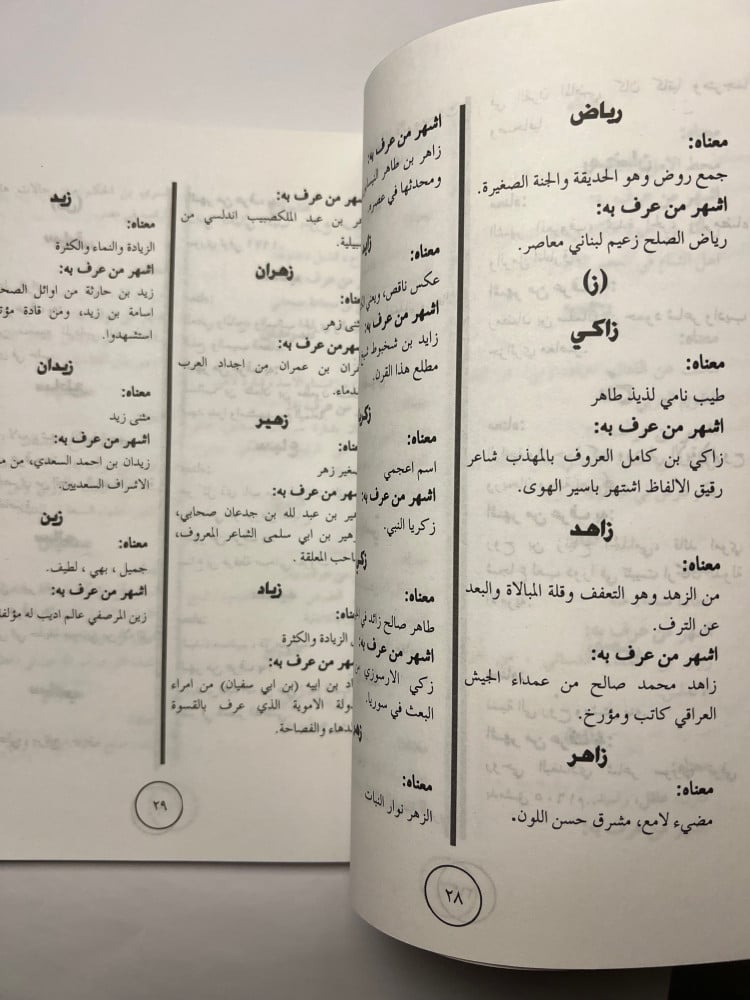 رياض
معناه:
جمع روض وهو الحديقة والجنة الصغيرة.
اشهر من عرف به:
رياض الصلح زعيم لبناني معاصر.
(ز)
زاكي
معناه:
طيب نامي لذيذ طاهر
اشهر من عرف به:
زاكي بن كامل العروف بالمهذب شاعر
رقيق الالفاظ اشتهر باسير الهوى.
زاهد
معناه:
من الزهد وهو التعفف وقلة المبالاة والبعد
عن الترف.
اشهر من عرف به:
زاهد محمد صالح من عمداء الجيش
العراقي كاتب ومؤرخ.
زاهر
معناه:
مضيء لامع، مشرق حسن اللون.
اشهر من عرف به:
زاهر بن طاهر
ومحدثها في عصره.
معناه:
عكس ناقص، ويعني
اشهر من عرف به:
زايد بن شخبوط
مطلع هذا القرن.
معناه:
اسم اعجمي
اشهر من عرف به:
زكريا النبي.
معناه:
طاهر صالح زائد في
اشهر من عرف به:
زكي الارسوزي
البعث في سوريا.
معناه:
الزهر نوار النبات
٢٨
من عرف به:
بن عبد الملك
صبيب اندلسي من
زهران
مثنى زهر
من عرف به:
بن عمران من اجداد العرب
زهير
زهر
من عرف به:
بن عبد لله بن جدعان صحابي،
بن ابي سلمى الشاعر المعروف،
المعلقة .
زياد
الزيادة والكثرة
من عرف به:
بن ابيه (بن ابي سفيان) من امراء
الاموية الذي عرف بالقسوة
والفصاحة.
زيد
معناه:
الزيادة والنماء والكثرة
اشهر من عرف به:
زيد بن حارثة من اوائل
اسامة بن زيد، ومن قادة
استشهدوا.
زيدان
معناه:
مثنى زيد
اشهر من عرف به:
زيدان بن احمد السعدي، من
الاشراف السعديين.
زين
معناه:
جميل ، بهي ، لطيف.
اشهر من عرف به:
زين المرصفي عالم اديب له
٢٩